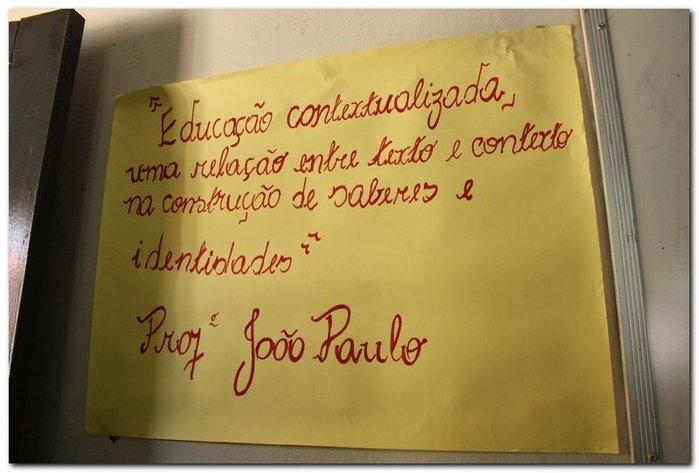 "Educação contextualizada,
uma relação entre texto e contexto
na construção de saberes e
identidades"
Profº João Paulo